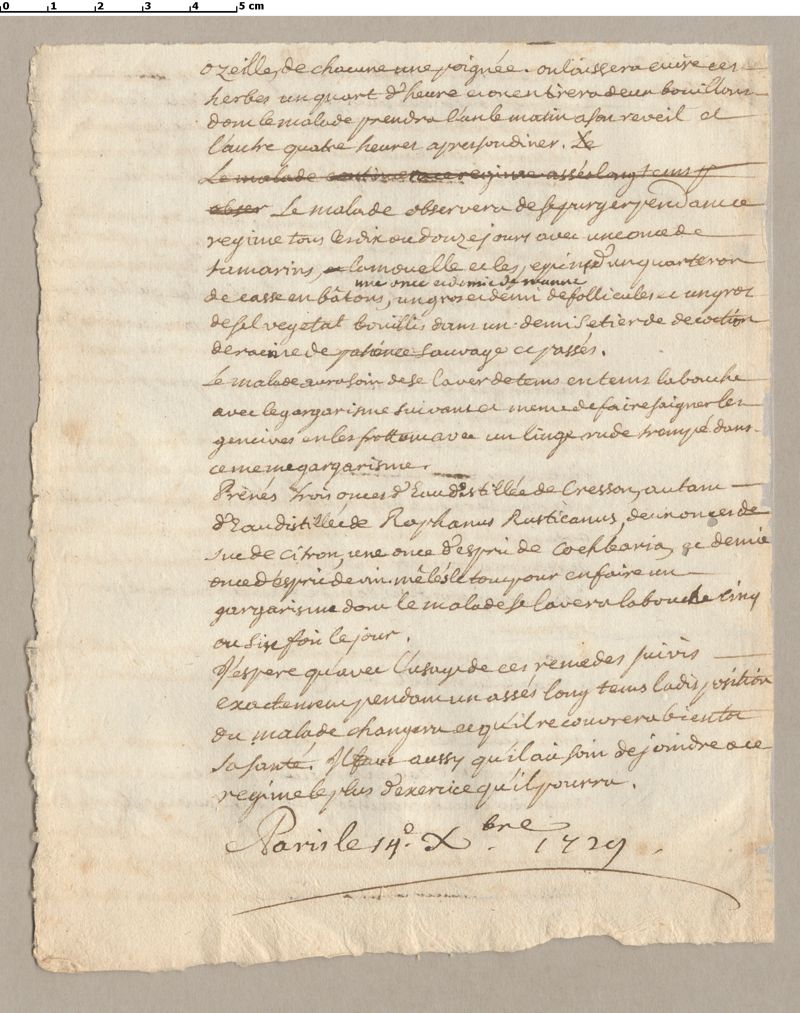 0 1 2 3 4 5 cm
ozeilles, de chacune une poignée. on laissera cuire ces
herbes un quart d'heure et on en tirera deux bouillons
dont le malade prendra l'un le matin a son reveil et
l'autre quatre heures apres son diner. Le
Le malade continuera ce regime assés long tems
obser Le malade observera de se purger pendant ce
regime tous les dix ou douze jours avec un once de
tamarins, la mouelle et les pepins d'un quarteron
une once et demie de manne
de casse en bâtons, un gros et demi de follicules et un gros
de sel vegetal bouillis dans un demi setier de decoction
de racine de patience sauvage et passés.
Le malade aura soin de se laver de tems en tems la bouche
avec le gargarisme suivant et meme de faire saigner les
gencives en les frottant avec un linge rude trempé dans
ce meme gargarisme.
Prenés trois onces d'Eau distillée de Cresson, autant
d'Eau distillée de Raphanus Rusticanus, deux onces de
suc de citron, une once d'esprit de Cochlearia, et demie
once d'esprit de vin. mêlés le tout pour en faire un
gargarisme dont le malade se lavera la bouche cinq
ou six fois le jour.
J'espere qu'avec l'usage de ces remedes suivis
exactement pendant un assés long tems la disposition
du malade changera et qu'il recouvrera bientot
sa santé. Il faut aussy qu'il ait soin de joindre a ce
regime le plus d'exercice qu'il pourra.
Paris le 14e. Xbre. 1729.